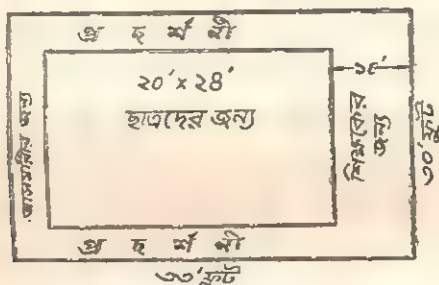 প্র দ র্শ নী
২০′ x ২৪′
ছাত্রদের জন্য
আলমারীর জন্য
শিক্ষকের
জন্য
৩০′ ফুট
প্র দ র্শ নী
৩৩′ ফুট